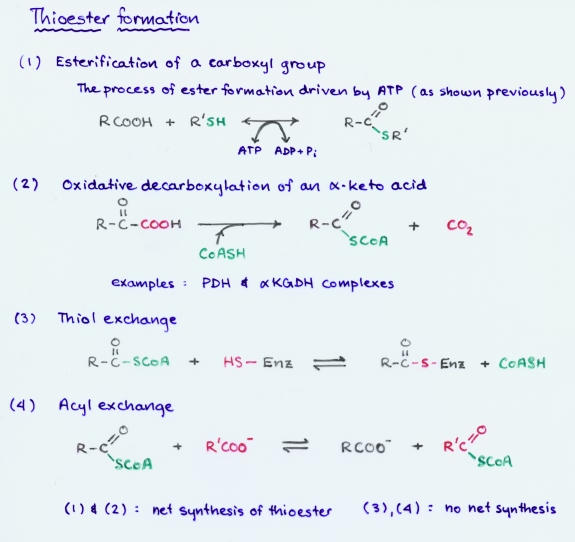 Thioester formation
(1) Esterification of a carboxyl group
The process of ester formation driven by ATP (as shown previously)
RCOOH + R'SH ⇌ R-C(=O)-SR'
ATP ADP + Pi
(2) Oxidative decarboxylation of an α-keto acid
R-C(=O)-COOH → R-C(=O)-SCoA + CO2
CoASH
examples : PDH & αKGDH complexes
(3) Thiol exchange
R-C(=O)-SCoA + HS-Enz ⇌ R-C(=O)-S-Enz + CoASH
(4) Acyl exchange
R-C(=O)-SCoA + R'COO⁻ ⇌ RCOO⁻ + R'C(=O)-SCoA
(1) & (2) : net synthesis of thioester (3), (4) : no net synthesis